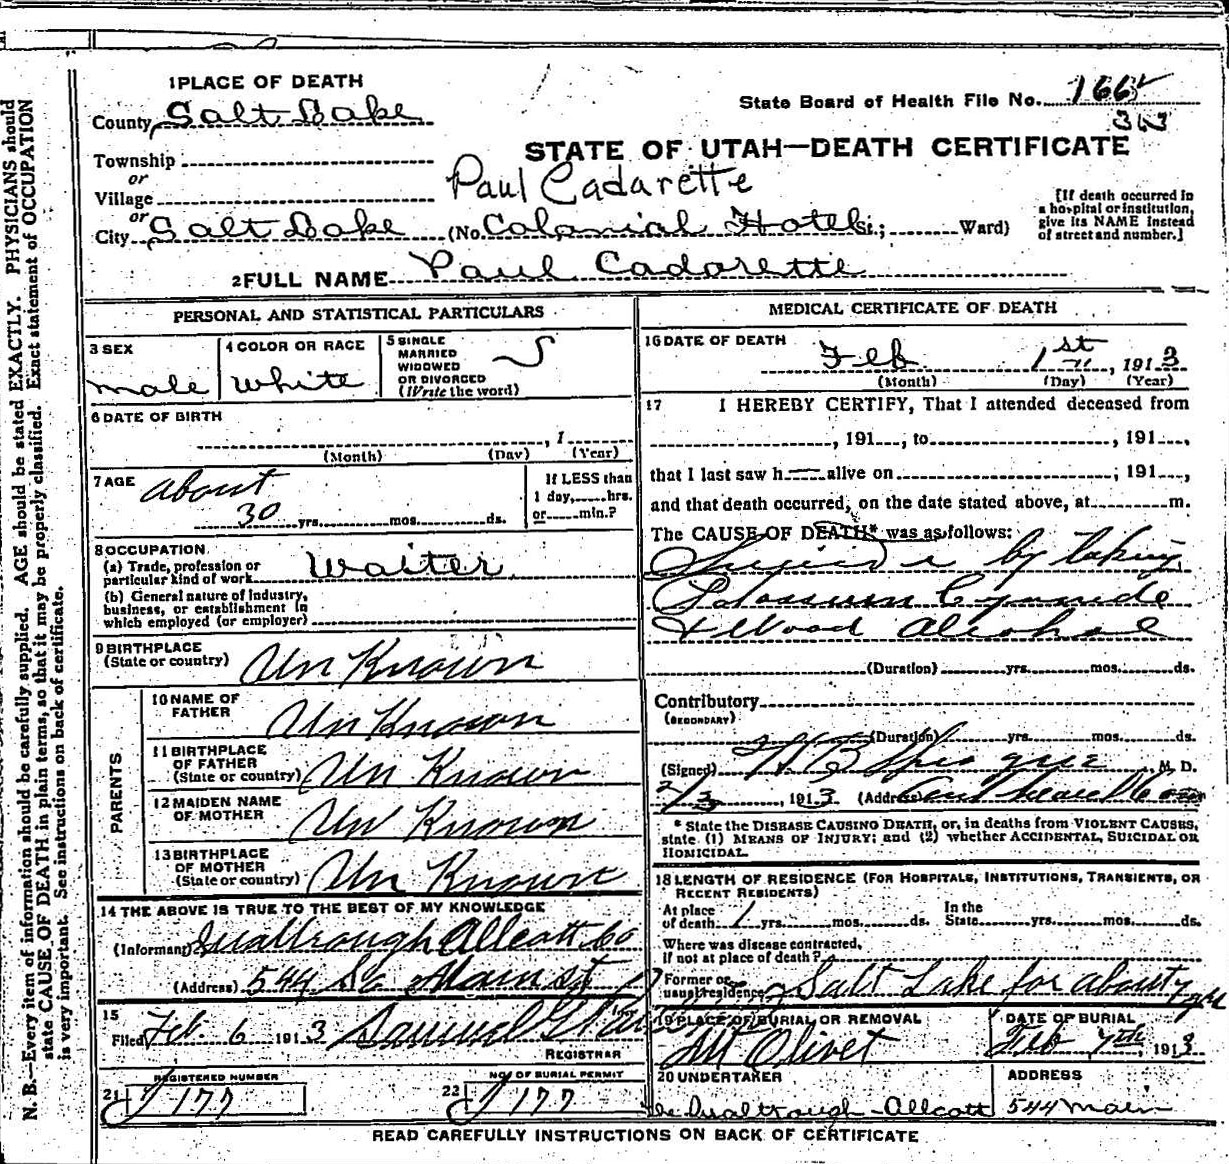 1 PLACE OF DEATH
County Salt Lake
State Board of Health File No.
Township
or
Village
or
City Salt Lake (No. Colonial Hotel St.; Ward)
STATE OF UTAH—DEATH CERTIFICATE
Paul Cadarette
[If death occurred in
a hospital or institution,
give its NAME instead
of street and number.]
2 FULL NAME Paul Cadarette
PERSONAL AND STATISTICAL PARTICULARS
3 SEX
male
4 COLOR OR RACE
White
5 SINGLE
MARRIED
WIDOWED
OR DIVORCED
(Write the word)
S
6 DATE OF BIRTH
, 1
(Month) (Day) (Year)
7 AGE
about
30 yrs. mos. ds.
If LESS than
1 day, hrs.
or min.?
8 OCCUPATION
(a) Trade, profession or
particular kind of work Waiter
(b) General nature of Industry,
business, or establishment in
which employed (or employer)
9 BIRTHPLACE
(State or country) Un Known
PARENTS
10 NAME OF
FATHER Un Known
11 BIRTHPLACE
OF FATHER
(State or country) Un Known
12 MAIDEN NAME
OF MOTHER Un Known
13 BIRTHPLACE
OF MOTHER
(State or country) Un Known
14 THE ABOVE IS TRUE TO THE BEST OF MY KNOWLEDGE
(Informant) Qualtrough Allcott Co
(Address) 544 So Main st
15
Filed Feb. 6 1913 Samuel G
REGISTRAR
REGISTERED NUMBER
21 J 177
NO. OF BURIAL PERMIT
22 J 177
MEDICAL CERTIFICATE OF DEATH
16 DATE OF DEATH
Feb 1st, 1913
(Month) (Day) (Year)
17 I HEREBY CERTIFY, That I attended deceased from
, 191 , to , 191 ,
that I last saw h alive on ; 191 ,
and that death occurred, on the date stated above, at m.
The CAUSE OF DEATH* was as follows:
Suicide by taking
Potassium Cyanide
& Wood Alcohol
(Duration) yrs. mos. ds.
Contributory
(SECONDARY)
(Duration) yrs. mos. ds.
(Signed) M. D.
2/3, 1913 (Address)
* State the DISEASE CAUSING DEATH, or, in deaths from VIOLENT CAUSES,
state (1) MEANS OF INJURY; and (2) whether ACCIDENTAL, SUICIDAL OR
HOMICIDAL.
18 LENGTH OF RESIDENCE (FOR HOSPITALS, INSTITUTIONS, TRANSIENTS, OR
RECENT RESIDENTS)
At place
of death 1 yrs. mos. ds.
In the
State yrs. mos. ds.
Where was disease contracted,
If not at place of death?
Former or
usual residence Salt Lake for about
19 PLACE OF BURIAL OR REMOVAL
Mt Olivet
DATE OF BURIAL
Feb 7th, 1913
20 UNDERTAKER
Qualtrough-Allcott
ADDRESS
544 Main
READ CAREFULLY INSTRUCTIONS ON BACK OF CERTIFICATE
N. B.—Every item of information should be carefully supplied. AGE should be stated EXACTLY. PHYSICIANS should
state CAUSE OF DEATH in plain terms, so that it may be properly classified. Exact statement of OCCUPATION
is very important. See instructions on back of certificate.